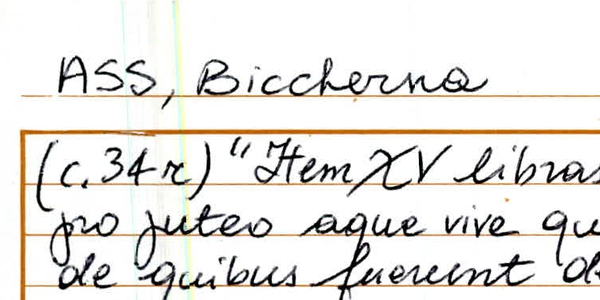 ASS, Biccherna
(c. 34 r) "Item XV libras
pro puteo aque vive qu
de quibus fuerunt d